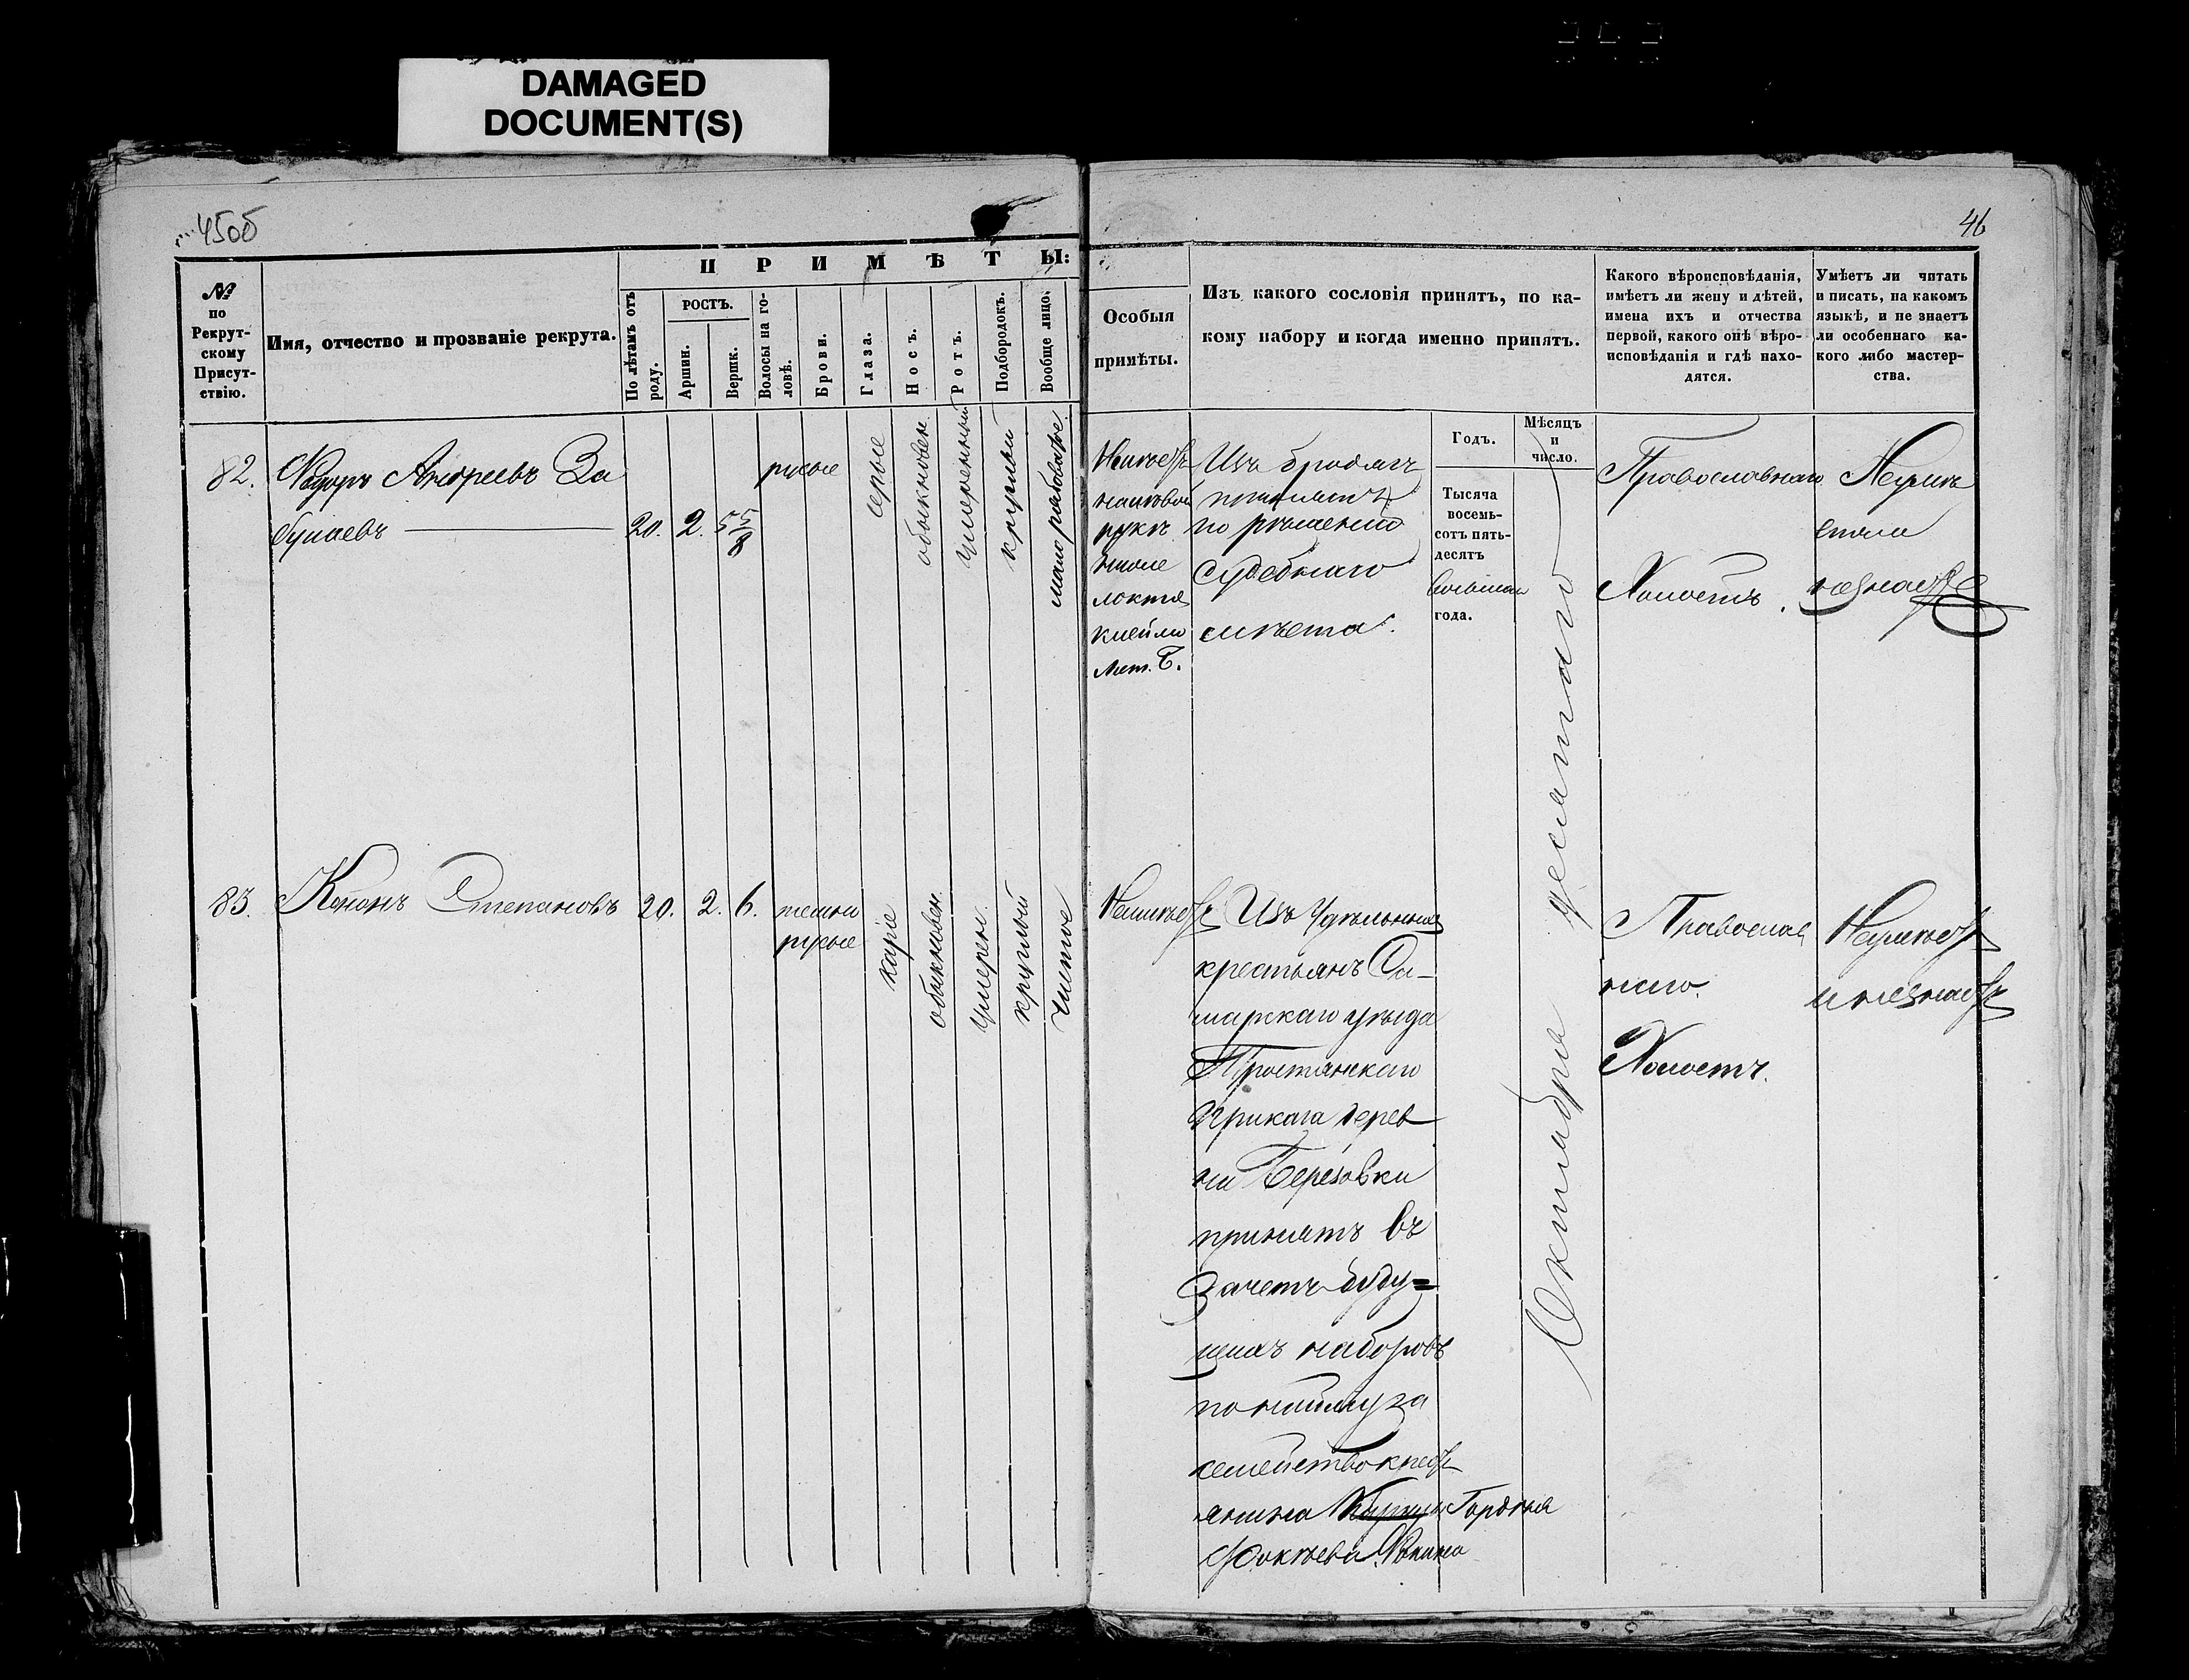 DAMAGED
DOCUMENT(S)
45об
46
№
по
Рекрут-
скому
Присут-
ствію.
Имя, отчество и прозваніе рекрута.
ПРИМѢТЫ:
По лѣтамъ отъ
роду.
РОСТЪ.
Аршин.
Вершк.
Волосы на го-
ловѣ.
Брови.
Глаза.
Носъ.
Ротъ.
Подбородокъ.
Вообще лицо.
Особыя
примѣты.
Изъ какого сословія принятъ, по ка-
кому набору и когда именно принятъ.
Годъ.
Мѣсяцъ
и
число.
Какого вѣроисповѣданія,
имѣетъ ли жену и дѣтей,
имена ихъ и отчества
первой, какого онѣ вѣро-
исповѣданія и гдѣ нахо-
дятся.
Умѣетъ ли читать
и писать, на какомъ
языкѣ, и не знаетъ
ли особеннаго ка-
кого либо мастер-
ства.
82.
Ѳедоръ Андреевъ За
бунаевъ
20.
2.
5 5/8
русые
серые
обыкновен.
умеренный
круглый
мало рябоватое.
рукѣ
локтя
клеймо
лит. Б.
Изъ бродягъ
принятъ
по рѣшенію
судебнаго
мѣста.
Тысяча
восемь-
сотъ пять-
десятъ
восьмаго
года.
Октября десятаго
Православнаго
Холостъ.
незнаетъ
83.
Кононъ Степановъ
20.
2.
6.
темно
русые
каріе
обыкновен.
умерен.
круглый
чистое
Неимѣетъ
Изъ Удѣльныхъ
крестьянъ Са-
марскаго уѣзда
Приказа дерев
ни Березовки
принятъ въ
зачетъ буду=
щихъ наборовъ
по найму за
семейство крест
янина Гордѣя
Фокѣева
Православ
наго.
Холостъ.
Неумѣетъ
и незнаетъ